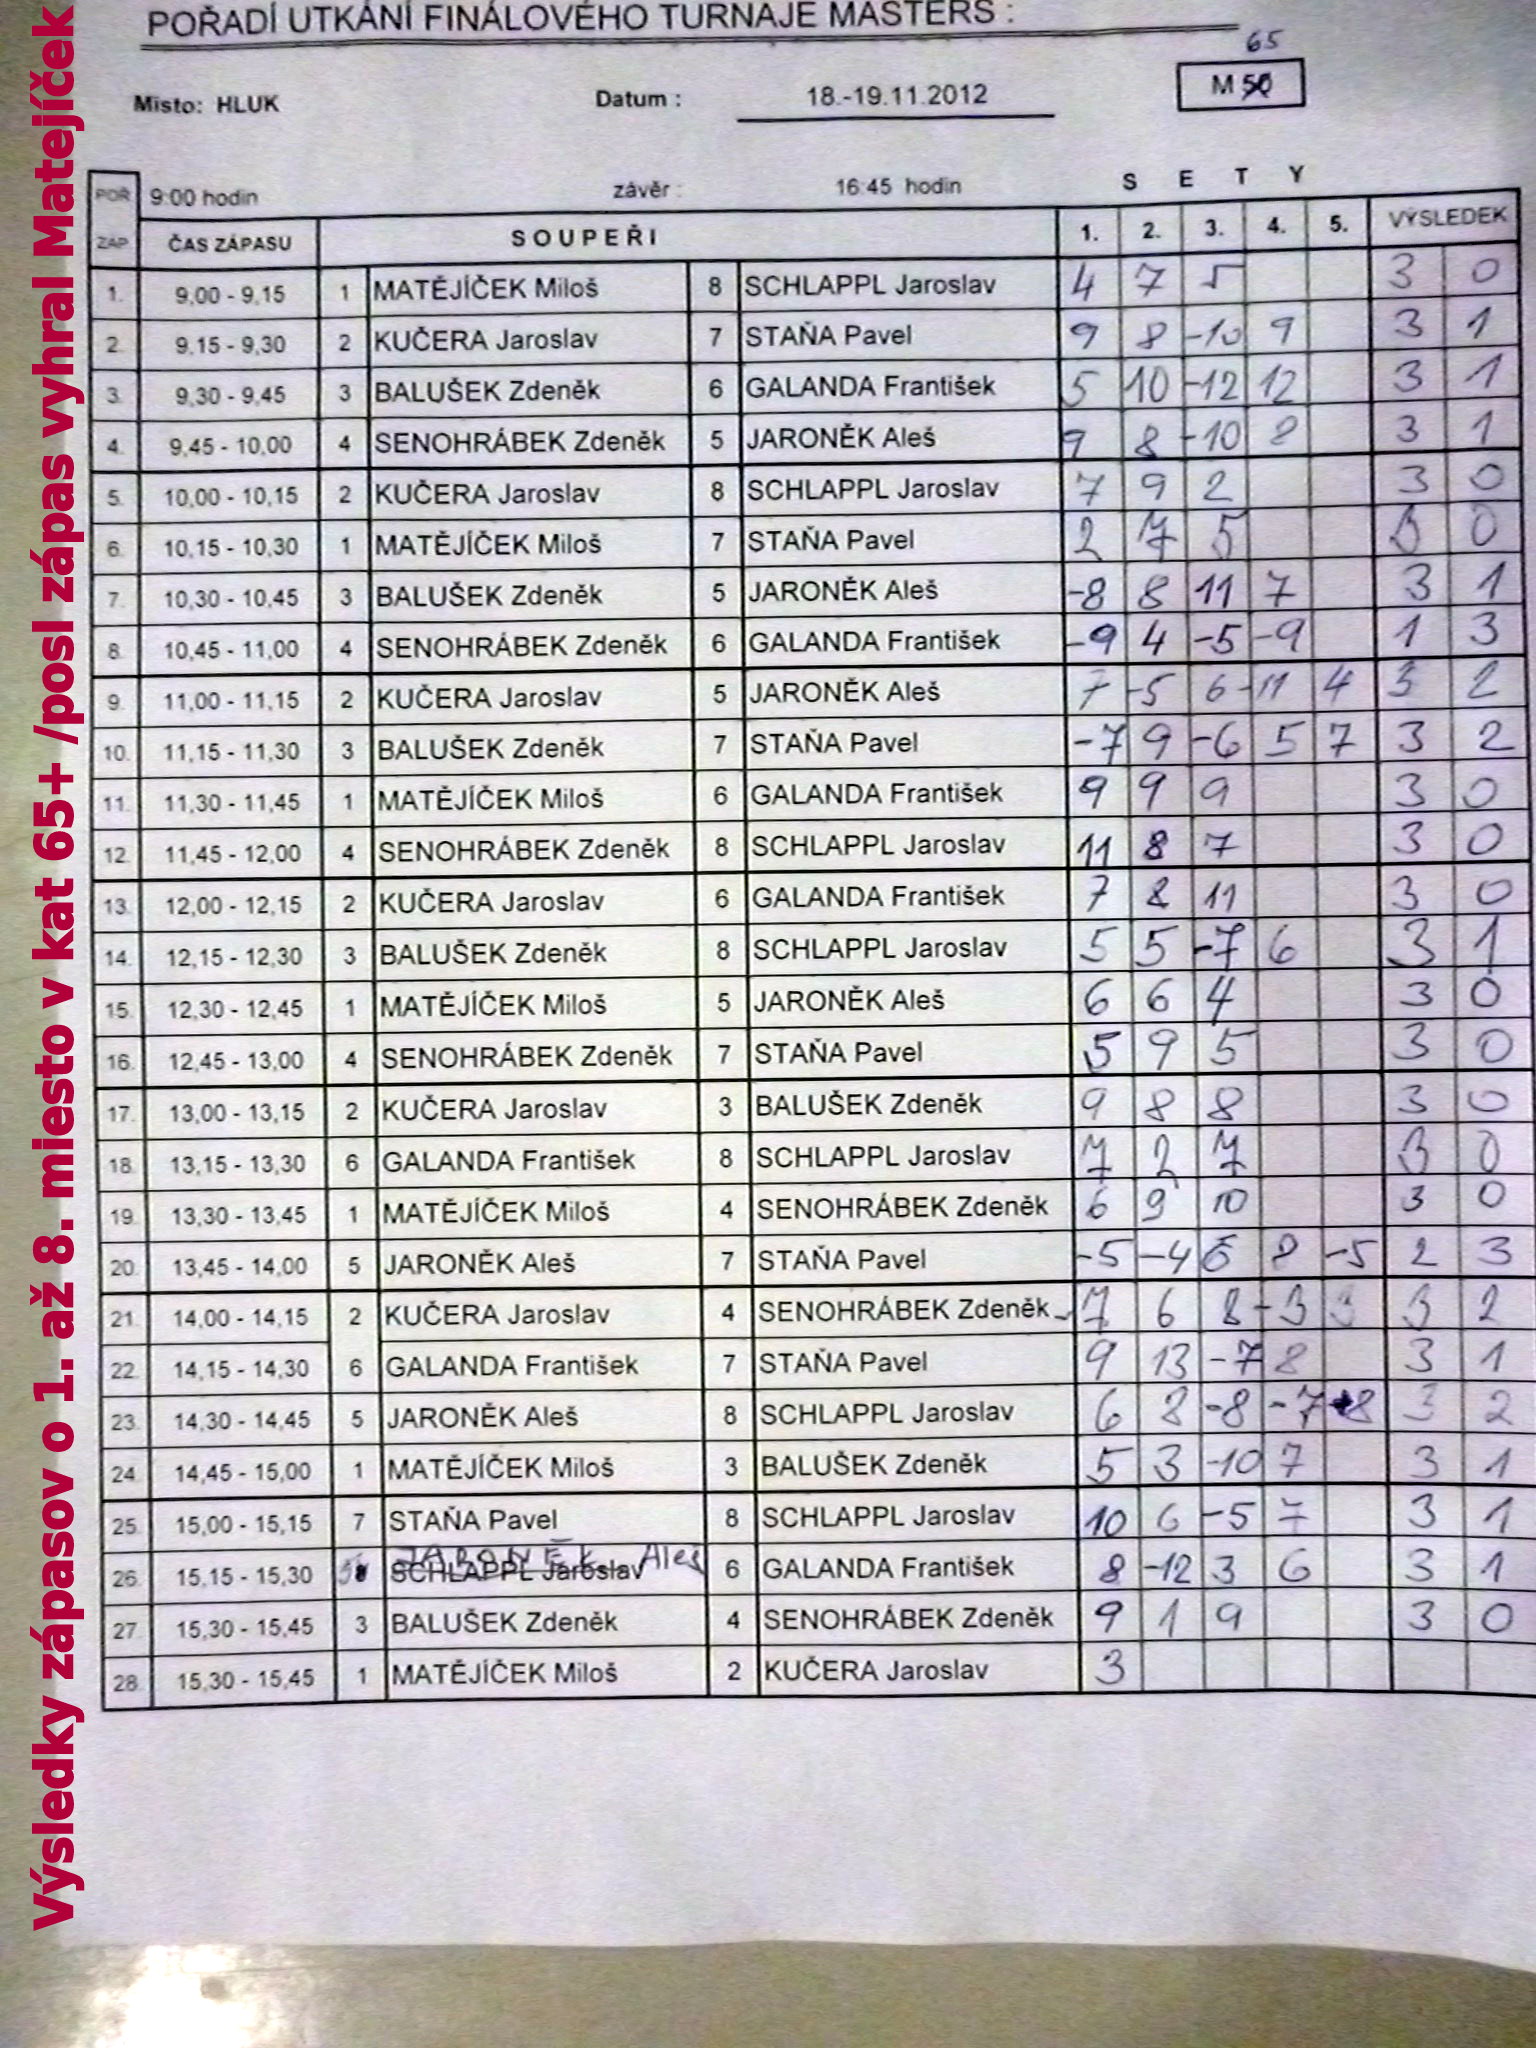 POŘADÍ UTKÁNÍ FINÁLOVÉHO TURNAJE MASTERS :
65
Místo: HLUK Datum : 18.-19.11.2012 M 50
POŘ. 9:00 hodin závěr : 16:45 hodin S E T Y
ZÁP. ČAS ZÁPASU SOUPEŘI 1. 2. 3. 4. 5. VÝSLEDEK
1. 9,00 - 9,15 1 MATĚJÍČEK Miloš 8 SCHLAPPL Jaroslav 4 7 5 3 0
2. 9,15 - 9,30 2 KUČERA Jaroslav 7 STAŇA Pavel 9 8 -10 9 3 1
3. 9,30 - 9,45 3 BALUŠEK Zdeněk 6 GALANDA František 5 10 -12 12 3 1
4. 9,45 - 10,00 4 SENOHRÁBEK Zdeněk 5 JARONĚK Aleš 9 8 -10 8 3 1
5. 10,00 - 10,15 2 KUČERA Jaroslav 8 SCHLAPPL Jaroslav 7 9 2 3 0
6. 10,15 - 10,30 1 MATĚJÍČEK Miloš 7 STAŇA Pavel 2 7 5 3 0
7. 10,30 - 10,45 3 BALUŠEK Zdeněk 5 JARONĚK Aleš -8 8 11 7 3 1
8. 10,45 - 11,00 4 SENOHRÁBEK Zdeněk 6 GALANDA František -9 4 -5 -9 1 3
9. 11,00 - 11,15 2 KUČERA Jaroslav 5 JARONĚK Aleš 7 -5 6 -11 4 3 2
10. 11,15 - 11,30 3 BALUŠEK Zdeněk 7 STAŇA Pavel -7 9 -6 5 7 3 2
11. 11,30 - 11,45 1 MATĚJÍČEK Miloš 6 GALANDA František 9 9 9 3 0
12. 11,45 - 12,00 4 SENOHRÁBEK Zdeněk 8 SCHLAPPL Jaroslav 11 8 7 3 0
13. 12,00 - 12,15 2 KUČERA Jaroslav 6 GALANDA František 7 8 11 3 0
14. 12,15 - 12,30 3 BALUŠEK Zdeněk 8 SCHLAPPL Jaroslav 5 5 -7 6 3 1
15. 12,30 - 12,45 1 MATĚJÍČEK Miloš 5 JARONĚK Aleš 6 6 4 3 0
16. 12,45 - 13,00 4 SENOHRÁBEK Zdeněk 7 STAŇA Pavel 5 9 5 3 0
17. 13,00 - 13,15 2 KUČERA Jaroslav 3 BALUŠEK Zdeněk 9 8 8 3 0
18. 13,15 - 13,30 6 GALANDA František 8 SCHLAPPL Jaroslav 7 2 7 3 0
19. 13,30 - 13,45 1 MATĚJÍČEK Miloš 4 SENOHRÁBEK Zdeněk 6 9 10 3 0
20. 13,45 - 14,00 5 JARONĚK Aleš 7 STAŇA Pavel -5 -4 6 8 -5 2 3
21. 14,00 - 14,15 2 KUČERA Jaroslav 4 SENOHRÁBEK Zdeněk -7 6 8 -3 3 3 2
22. 14,15 - 14,30 6 GALANDA František 7 STAŇA Pavel 9 13 -7 8 3 1
23. 14,30 - 14,45 5 JARONĚK Aleš 8 SCHLAPPL Jaroslav 6 8 -8 -7 8 3 2
24. 14,45 - 15,00 1 MATĚJÍČEK Miloš 3 BALUŠEK Zdeněk 5 3 -10 7 3 1
25. 15,00 - 15,15 7 STAŇA Pavel 8 SCHLAPPL Jaroslav 10 6 -5 7 3 1
JARONĚK Aleš
26. 15,15 - 15,30 5 SCHLAPPL Jaroslav 6 GALANDA František 8 -12 3 6 3 1
27. 15,30 - 15,45 3 BALUŠEK Zdeněk 4 SENOHRÁBEK Zdeněk 9 1 9 3 0
28. 15,30 - 15,45 1 MATĚJÍČEK Miloš 2 KUČERA Jaroslav 3
Výsledky zápasov o 1. až 8. miesto v kat 65+ /posl zápas vyhral Matejíček